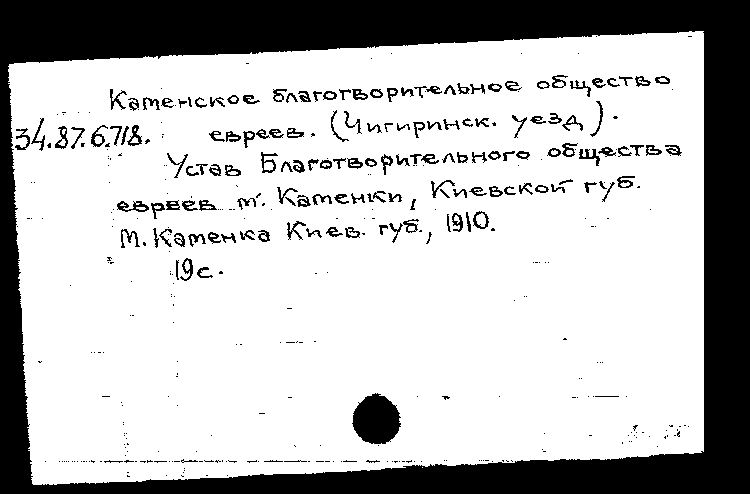 Каменское благотворительное общество
34.87.6.718. евреев. (Чигиринск. уезд).
Устав Благотворительного общества
евреев м. Каменки, Киевской губ.
М. Каменка Киев. губ., 1910.
19 с.